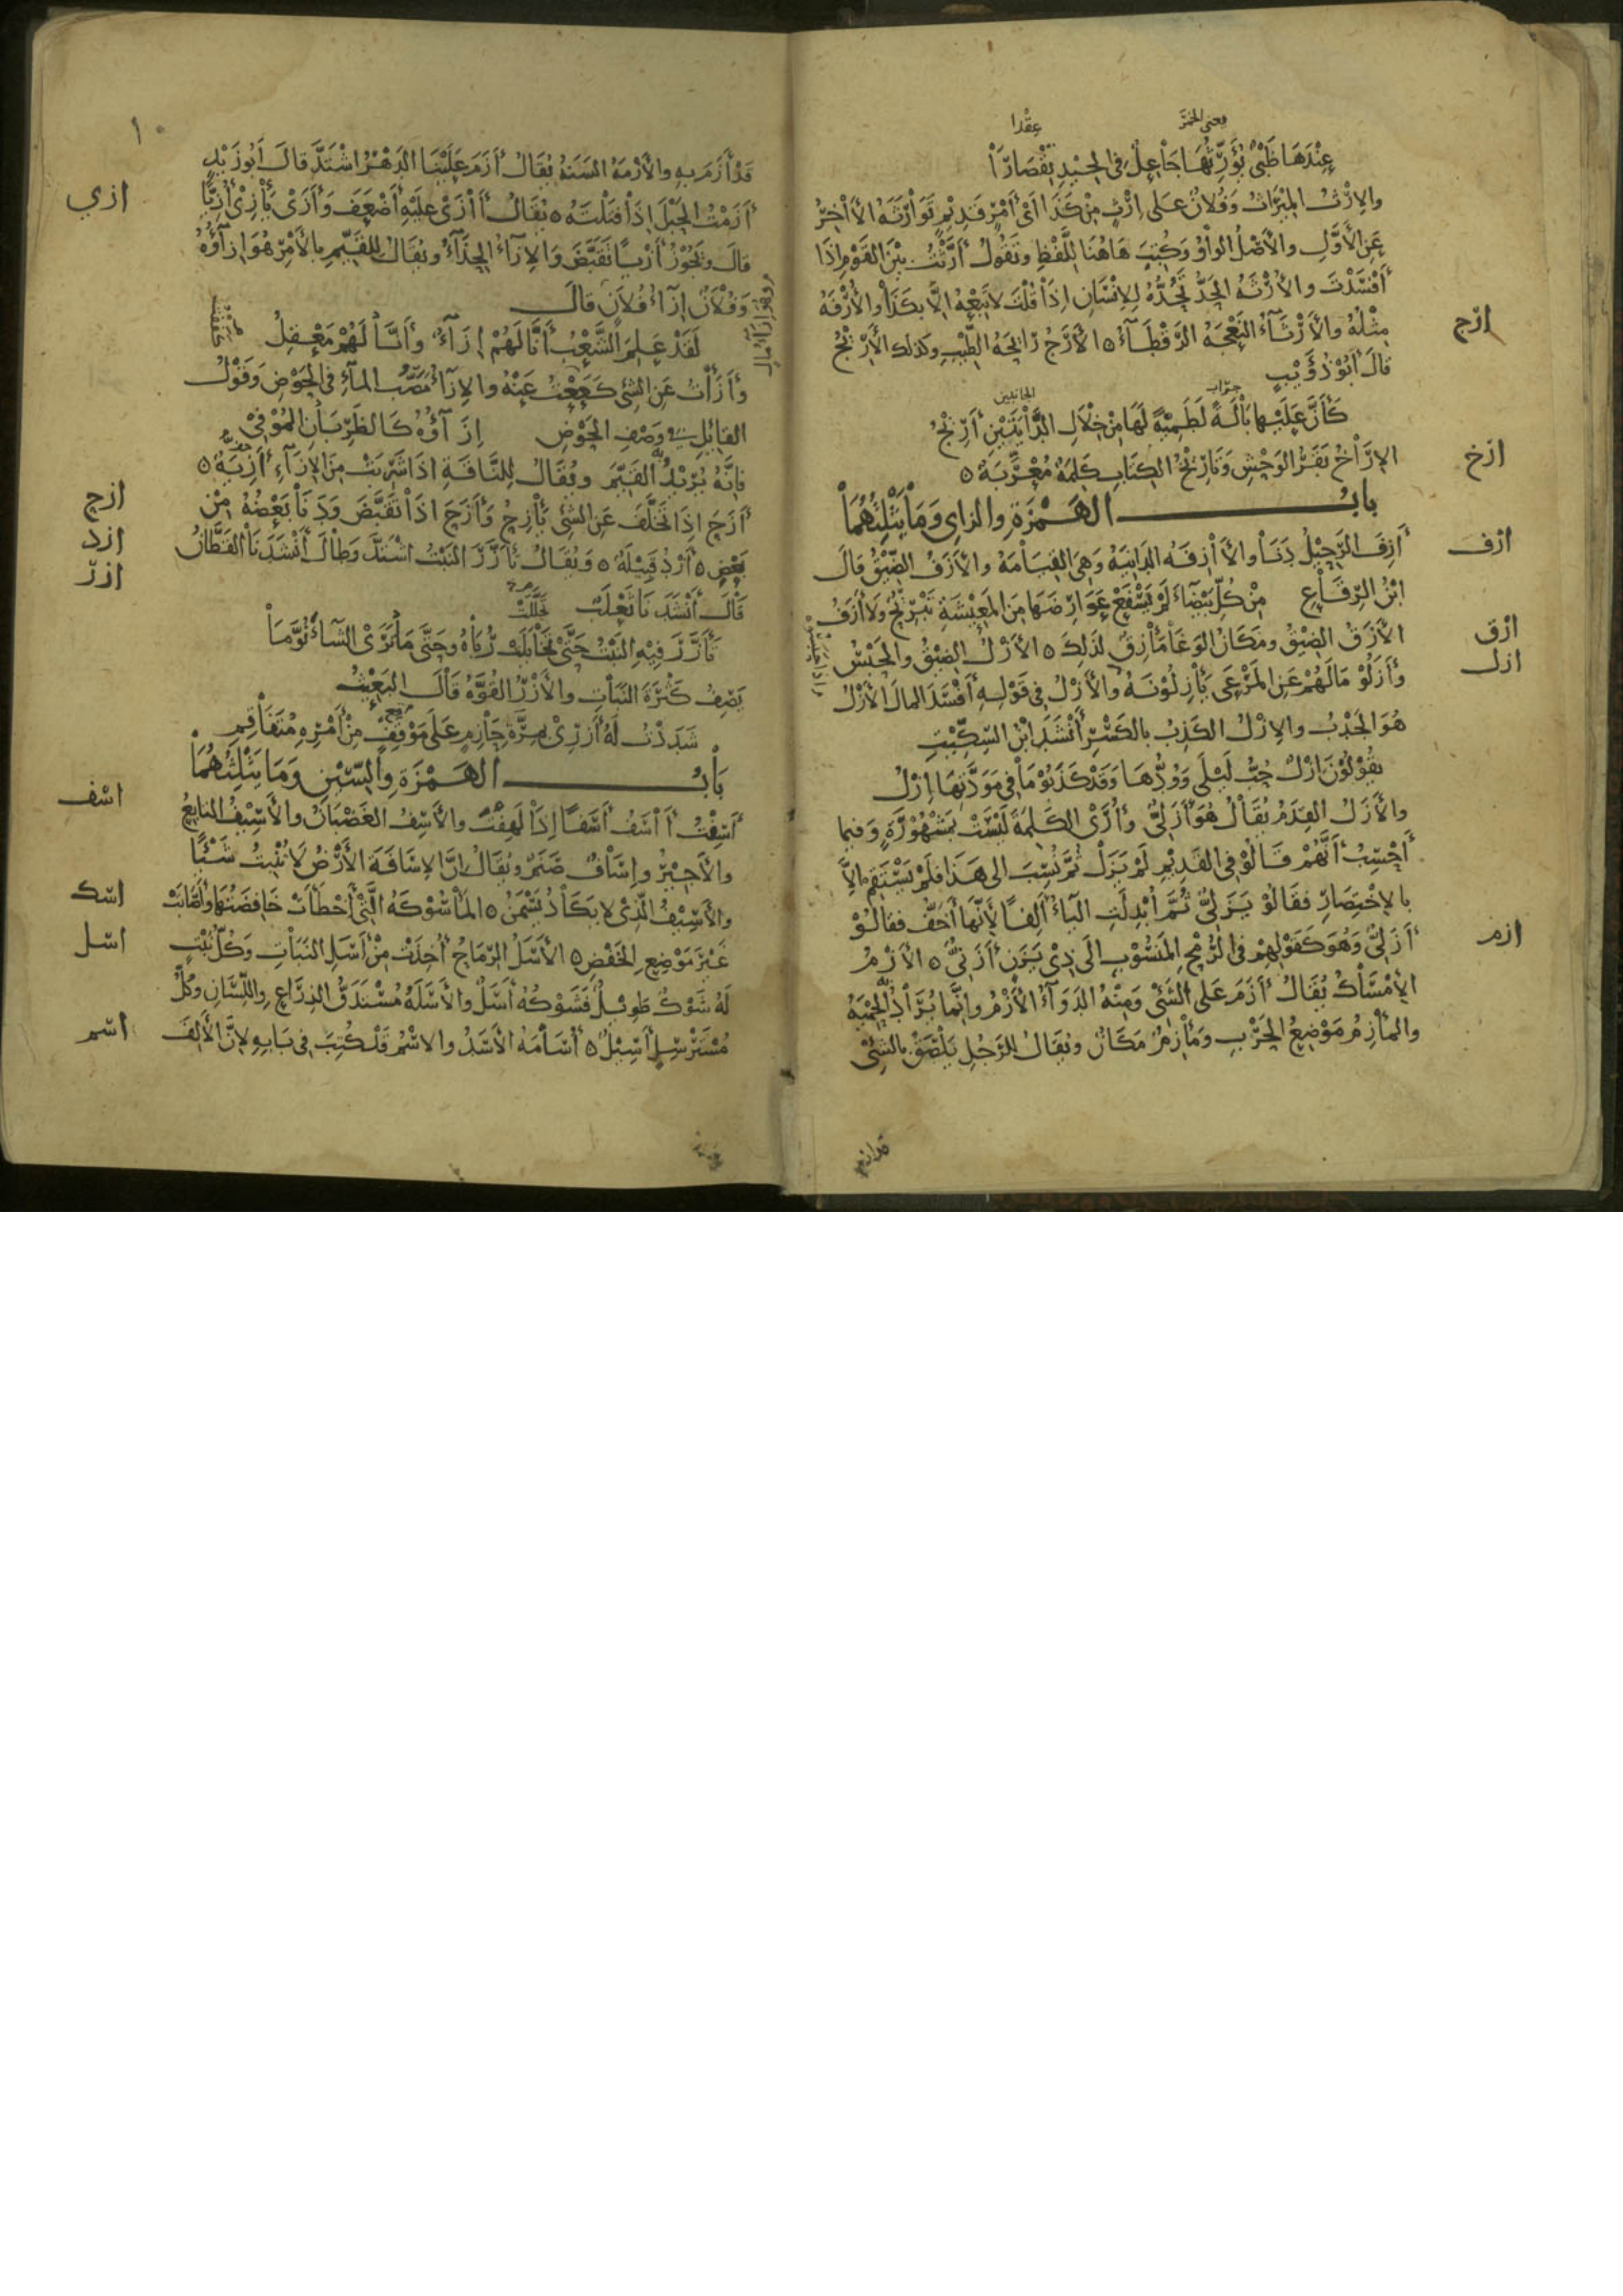 عِنْدَهَا ظَبْيٌ يُؤَرِّثُهَا جَاعِلٌ فِي الْجِيْدِ تِقْصَارَا
عِقْدا
والإرْثُ المِيْرَاثُ وَفُلانٌ عَلى إرْثٍ مِنْ كَذَا اَىْ أَمْرٍ قَدِيْمٍ تَوَارَثَهُ الآخِرُ
عَنِ الأَوَّلِ والأَصْلُ الوَاوُ وَكُتِبَ هَاهُنَا لِلَّفْظِ وتَقُولُ أَرَّثْتُ بَيْنَ القَوْمِ إذَا
أَفْسَدْتَ والأُرْثَهُ الحَدُّ تَحُدُّهُ لِلإنْسَانِ إذَا قُلْتَ لا تَبِعْهُ إلَّا بكَذَا والأُرْفَهُ
مِثْلُهُ والأَرْثَآءُ النَّعْجَهُ الرَّقْطَآءُ ٥ الأَرَجُ رَائِحَهُ الطِّيْبِ وكذلك الأَرِيْجُ
ارج
قالَ أَبُوْ ذُؤَيْبٍ
كَأَنَّ عَلَيْهَا بَالَةً لَطَمِيَّةً لَهَا مِنْ خِلَالِ الدَّأْيَتَيْنِ أَرِيْجُ
جراب
الجانبين
الإرَاخُ بَقَرُ الوَحْشِ وَتَارِيْخُ الكِتَابِ كَلِمَهٌ مُعَرَّبَهٌ ٥
ارخ
بابُ الهَمْزَةِ والزاى وَمَا يَثْلِثُهُمَا
أَزِفَ الرَّحِيْلُ دَنَا والآزِفَهُ الدَانِيَهُ وَهِيَ القِيَامَهُ والأَزَفُ الضِّيْقُ قالَ
ازف
ابْنُ الرِّقَاعِ مِنْ كُلِّ بَيْضَاءَ لَمْ يَسْفَعْ عَوَارِضَهَا مِنَ المَعِيْشَةِ تَبْرِيْحٌ وَلَا أَزَفُ
الأَزَقُ الضِيْقُ ومَكَانُ الوَغَا مَأْزِقٌ لِذَلِكَ ٥ الأَزْلُ الضِيْقُ والحَبْسُ
ازق
ازل
وأَزَلُوْ مَالَهُمْ عَنِ المَرْعَى يَأْزِلُوْنَهُ والأَزْلُ فِي قَوْلِهِ أَفْسَدَ المالَ الأَزْلُ
هُوَ الجَدْبُ والإزْلُ الكَذِبُ بالكَسْرِ أَنْشَدَ ابْنُ السِّكِّيْتِ
يَقُوْلُوْنَ إزْلٌ حُبُّ لَيْلَى وَوُدُّهَا وَقَدْ كَذَبُوْ مَا فِي مَوَدَّتِهَا إزْلُ
والأَزَلُ القِدَمُ يُقَالُ هُوَ أَزَلِيٌّ وأُرَى الكَلِمَةَ لَيْسَتْ بِمَشْهُوْرَةٍ وَفيما
أَحْسِبُ أَنَّهُمْ قَالُوْ فِي القَدِيْمِ لَمْ يَزَلْ ثُمَّ نُسِبَ الى هَذَا فلَمْ يَسْتَقِمْ إلاَّ
بالإخْتِصَارِ فقَالُوْ يَزَلِيٌّ ثُمَّ أُبْدِلَتِ اليَآءُ أَلِفًا لأَنَّهَا أَخَفُّ فقَالُوْ
أَزَلِيٌّ وَهُوَ كَقَوْلِهِمْ فِي الرُّمْحِ المَنْسُوْبِ الَى ذِيْ يَزَنَ أَزَنِيٌّ ٥ الأَزْمُ
ازم
الإمْسَاكُ يُقَالُ أَزَمَ عَلَى الشَّيْءِ وَمِنْهُ الدَوَآءُ الأَزْمُ وإنَّمَا يُرَادُ الحِمْيَهُ
والمَأْزِمُ مَوْضِعُ الحَرْبِ ومَأْزِمٌ مَكَانٌ ويُقَالُ للرَّجُلِ يَلْصَقُ بالشَيْءِ
قد ازم
١٠
قَدْ أَزَمَ بِهِ والأَزْمَهُ السَنَهُ يُقَالُ أَزَمَ عَلَيْنَا الدَهْرُ اشْتَدَّ قَالَ أَبُو زَيْدٍ
أَزَمْتُ الحَبْلَ إذَا فَتَلْتَهُ ٥ يُقَالُ أَأْزَى عَلَيْهِ أَضْعَفَ وَأَزَىْ يَأْزِيْ أُزِيًّا
ازي
قالَ وَتَجُوْزُ أَزْيًا تَقَبَّضَ وَالإزَآءُ الحِذَآءُ ويُقَالُ لِلقَيِّمِ بِالأَمْرِ هُوَ إزَآؤُهُ
وَفُلَانٌ إزَآءُ فُلَانٍ قالَ
لَقَدْ عَلِمَ الشَّعْبُ أَنَّا لَهُمْ إزَآءٌ وأَنَّا لَهُمْ مَعْقِلُ
وأَزَأْتُ عَنِ الشَيْءِ كَعَعْتُ عَنْهُ والإزَآءُ مَصَبُّ المآءِ فِي الحَوْضِ وَقَوْلُ
القَائِلِ فى وَصْفِ الحَوْضِ إزَآؤُهُ كَالظَرِبَانِ المُوْفِيْ
فإنَّهُ يُرِيْدُ القَيِّمَ ويُقَالُ لِلنَّاقَةِ إذَا شَرِبَتْ مِنَ الإزَآءِ أَزِيَةٌ ٥
أَزَحَ إذَا تَخَلَّفَ عَنِ الشَيْءِ يَأْزِحُ وَأَزَحَ إذَا تَقَبَّضَ وَدَنَا بَعْضُهُ مِنْ
ازح
بَعْضٍ ٥ أَزْدُ قَبِيْلَهٌ ٥ وَيُقَالُ تَأَزَّرَ النَبْتُ اشْتَدَّ وَطَالَ أَنْشَدَنَا القَطَّانُ
ازد
ازر
قَالَ أَنْشَدَنَا ثَعْلَبٌ
تَأَزَّرَ فِيْهِ النَبْتُ حَتَّى تَخَايَلَتْ رُبَاهُ وحَتَّى مَا تُرَىْ الشَآءُ نُوَّمَا
يَصِفُ كَثْرَةَ النَبَاتِ والأَزْرُ القُوَّهُ قَالَ البَعِيْثُ
شَدَدْتُ لَهُ أَزْرِيْ بِمِرَّةِ حَازِمٍ عَلَى مَوْقِفٍ مِنْ أَمْرِهِ مُتَفَاقِمِ
بَابُ الهَمْزَةِ والسّيْنِ وَمَا يَثْلِثُهُمَا
أَسِفْتُ أَأْسَفُ أَسَفًا إذَا لَهِفْتَ والأَسِفُ الغَضْبَانُ والأَسِيْفُ التَابِعُ
اسف
والأَجِيْرُ وإسَافُ صَنَمٌ ويُقَالُ إنَّ الإسَافَةَ الأَرْضُ لَا تُنْبِتُ شَيْئًا
والأَسِيْفُ الَّذِيْ لا يَكَادُ يَسْمَنُ ٥ المَأْسُوْكَهُ الَّتِيْ أَخْطَأَتْ خَافِضَتُهَا فأَصَابَتْ
اسك
غَيْرَ مَوْضِعِ الخَفْضِ ٥ الأَسَلُ الرِّمَاحُ أُخِذَتْ مِنْ أَسَلِ النَبَاتِ وَكُلُّ نَبْتٍ
اسل
لَهُ شَوْكٌ طَوِيْلٌ فَشَوْكُهُ أَسَلٌ والأَسَلَهُ مُسْتَدَقُّ الذِرَاعِ واللِّسَانِ وكُلُّ
مُسْتَرْسِلٍ أَسِيْلٌ ٥ أُسَامَهُ الأَسَدُ والاسْمُ قَدْ كُتِبَ فِي بَابِهِ لإنَّ الأَلِفَ
اسم